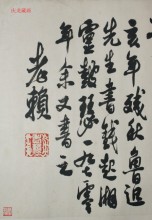 亥年殘秋魯迅
先生書錢起湘
靈鼓瑟一九七零
年余又書之
老賴